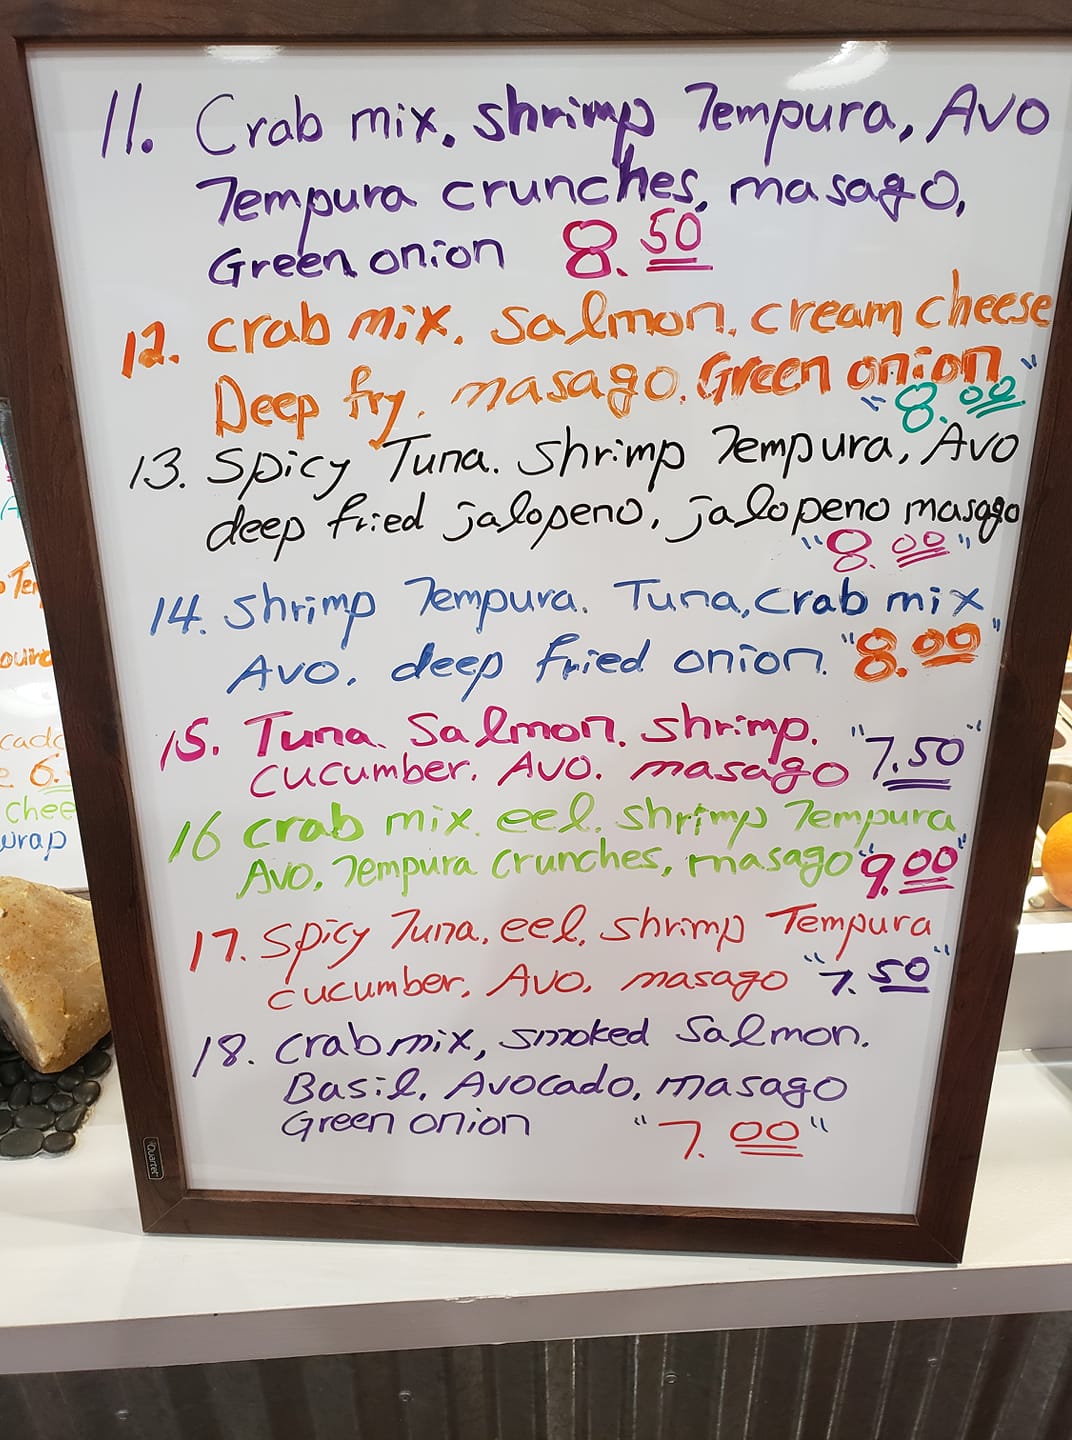 11. Crab mix. shrimp Tempura, Avo
Tempura crunches, masago,
Green onion 8.50
12. crab mix. Salmon. cream cheese
Deep fry. masago. Green onion
"8.00"
13. Spicy Tuna. Shrimp Tempura, Avo
deep fried jalopeno, jalopeno masago
"8.00"
14. shrimp Tempura. Tuna, crab mix
Avo. deep fried onion. "8.00"
15. Tuna. Salmon. shrimp.
cucumber. Avo. masago "7.50"
16 crab mix. eel. shrimp Tempura
Avo, Tempura crunches, masago "9.00"
17. Spicy Tuna, eel, shrimp Tempura
cucumber, Avo, masago "7.50"
18. crab mix, smoked Salmon.
Basil, Avocado, masago
Green onion "7.00"
Quartet
chee
wrap